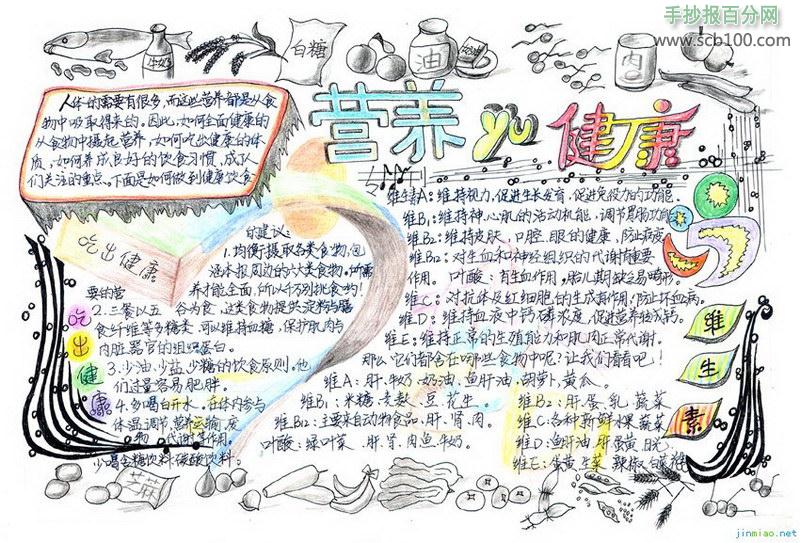 手抄报百分网
www.scb100.com
牛奶
白糖
油
肉
营养yu健康
人体的需要有很多,而这些营养都是从食
物中吸取得来的,因此,如何全面健康的
从食物中摄起营养,如何吃出健康的体
质,如何养成良好的饮食习惯,成人
们关注的重点。下面是如何做到健康饮食
的建议:
吃出健康
1.均衡摄取各类食物,包
活本报周边的六大类食物,所需
要的营
养才能全面,所以千万别挑食哟!
2.三餐以五谷为食,这类食物提供淀粉与膳
食纤维等多糖类,可以维持血糖,保护肌肉与
内脏器官的组织蛋白。
3.少油、少盐、少糖的饮食原则。他
们过量容易肥胖。
4.多喝白开水,在体内参与
体温调节、营养运病、废
物、代谢等作用,
少喝含糖饮料、碳酸饮料。
吃出健康
维生素A:维持视力,促进生长发育,促进免疫力的功能
维B₁:维持神心肌的活动机能,调节胃肠功能
维B₂:维持皮肤、口腔、眼的健康,防止病变
维B₁₂:对生血和神经组织的代谢有重要
作用。叶酸:有生血作用,胎儿期缺乏易畸形。
维C:对抗体及红细胞的生成有作用,防止坏血病。
维D:维持血液中钙磷浓度,促进营养强钙。
维E:维持正常的生殖能力和肌肉正常代谢。
那么它们都含在哪些食物中呢?让我们看看吧!
维A:肝、牛奶、奶油、鱼肝油、胡萝卜、黄瓜。
维B₁:米糠、麦麸、豆、花生。
维B₂:肝、蛋、乳、蔬菜
维B₁₂:主要来自动物食品、肝、肾、肉。
维C:各种新鲜水果、蔬菜
叶酸:绿叶菜、肝、肾、肉、鱼、牛奶。
维D:鱼肝油、肝、蛋黄
维E:蛋黄、生菜、辣椒、白菜花
维
生
素
芝麻
jinmiao.net